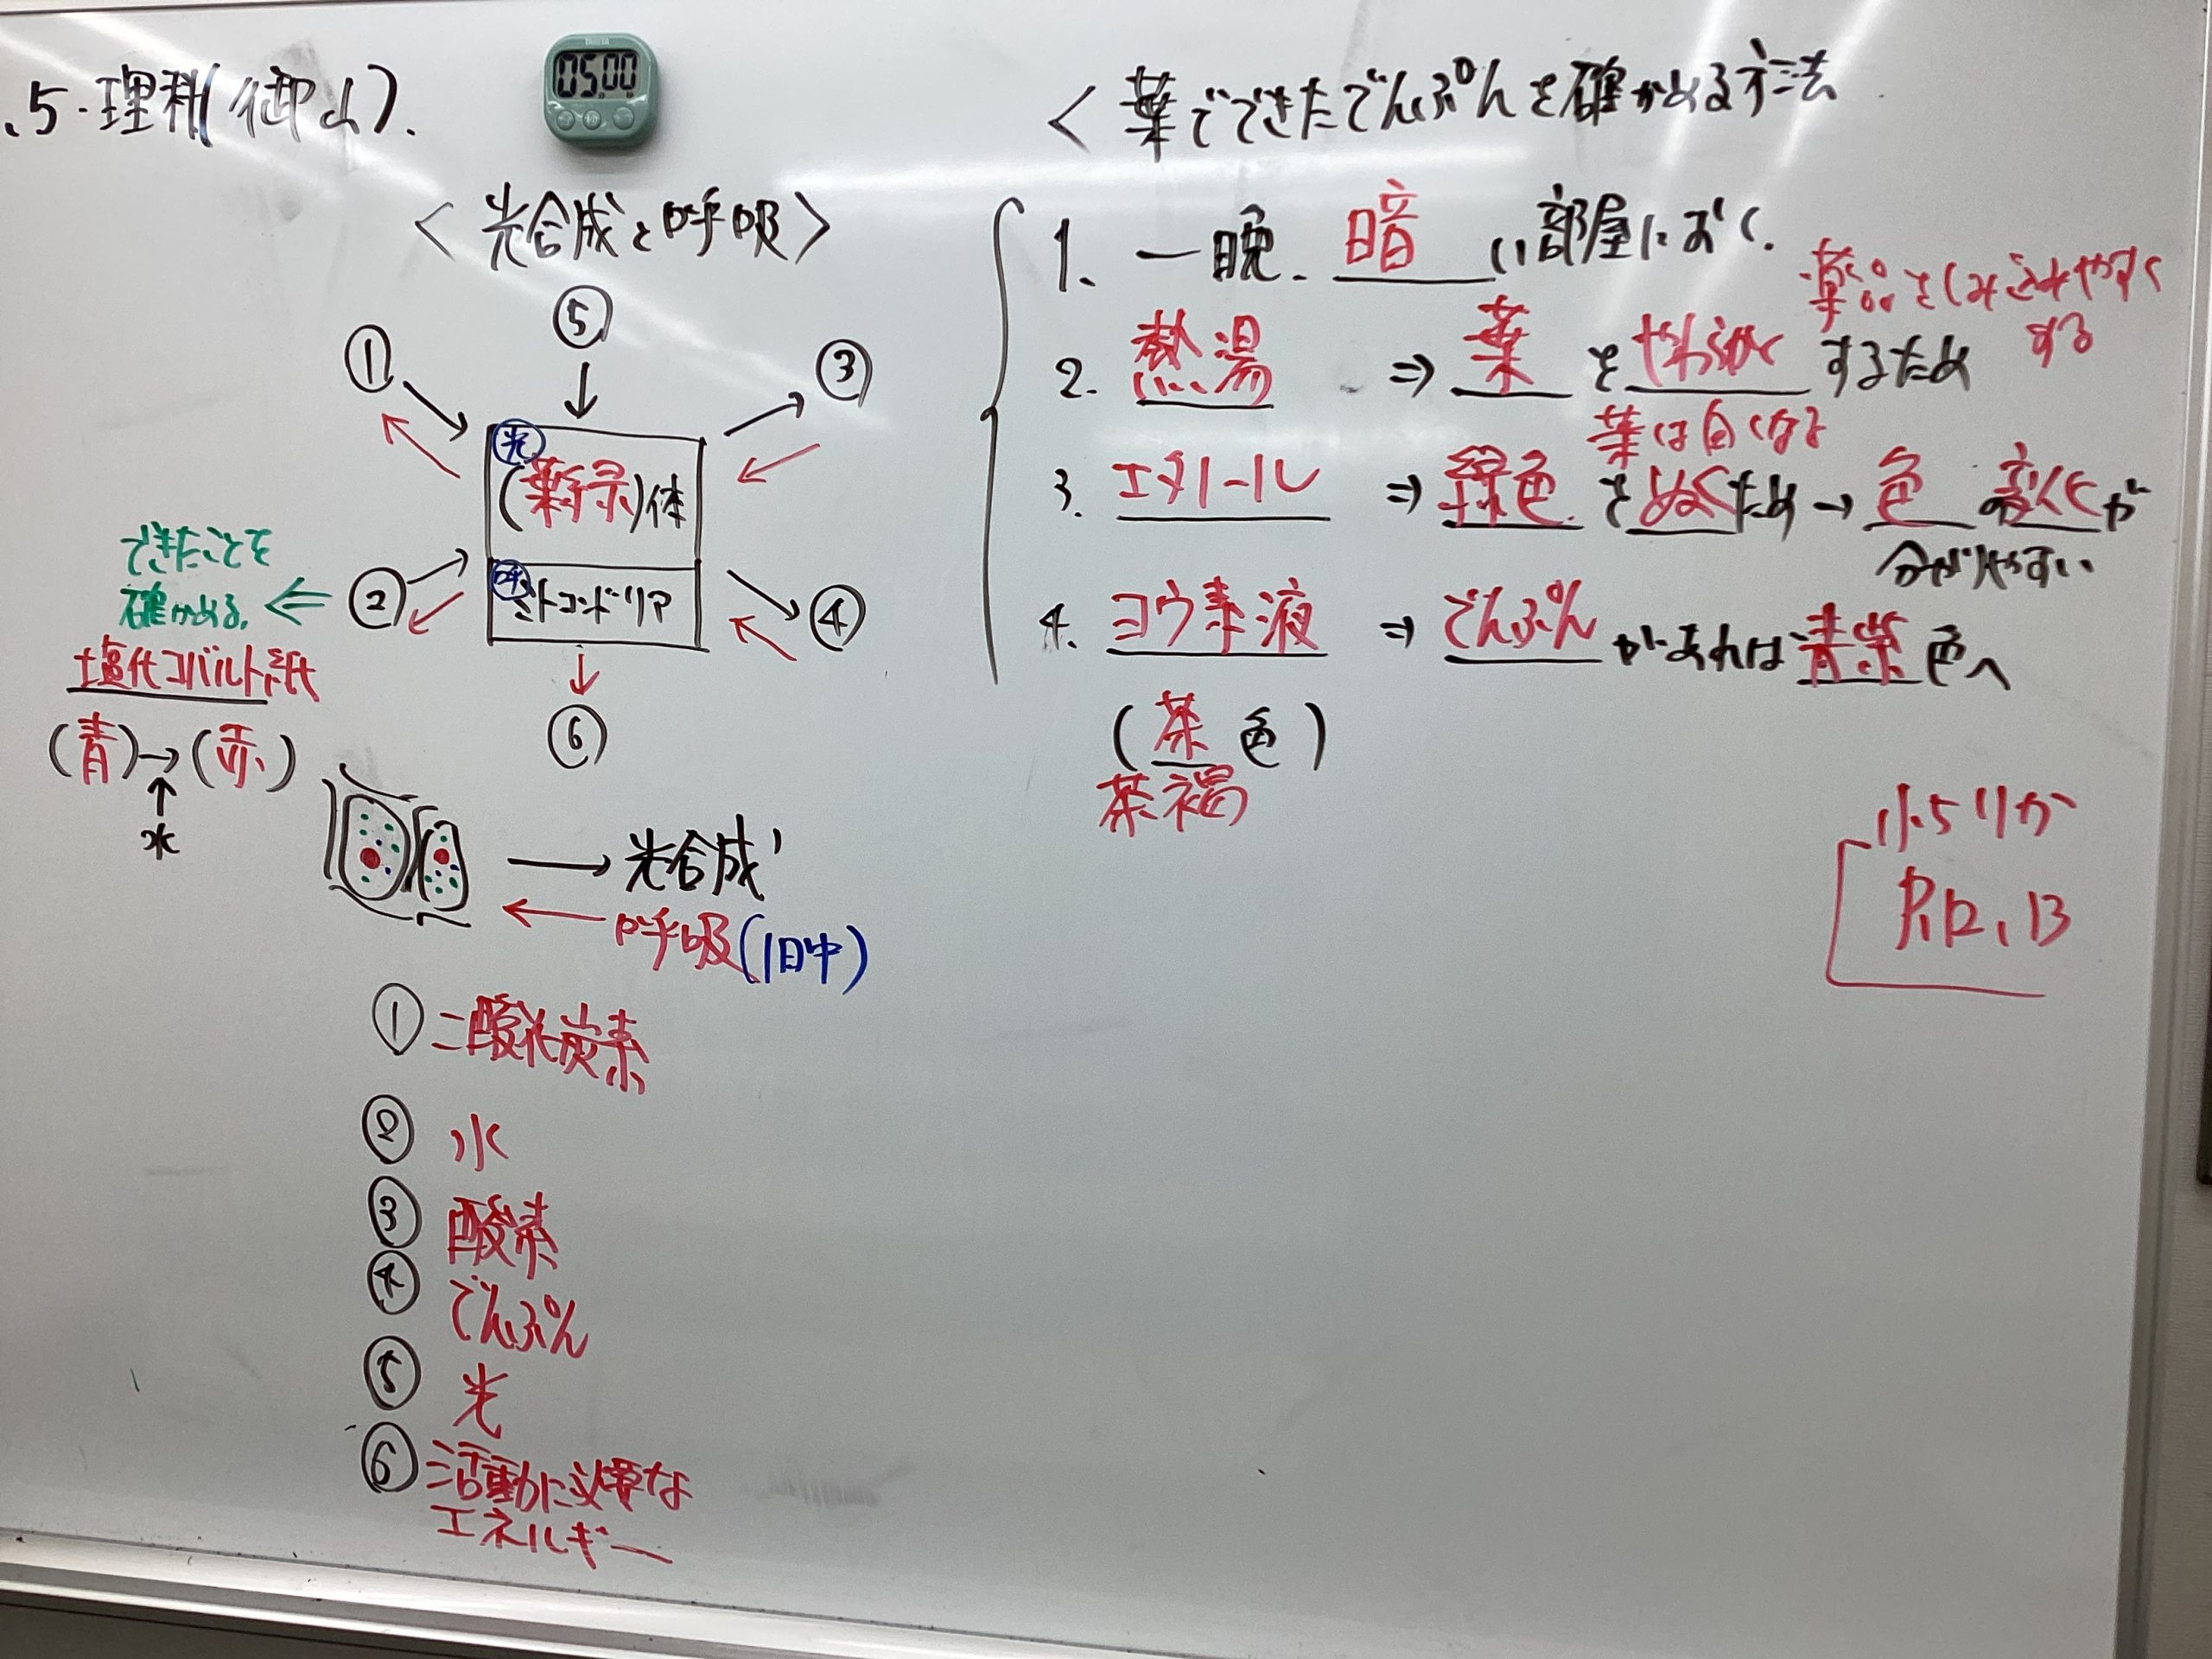 .5.理科(御山).
05.00
<光合成と呼吸>
⑤
①
③
光
(葉緑)体
呼
ミトコンドリア
②
④
⑥
できたことを
確かめる。
塩化コバルト紙
(青)→(赤)
↑
水
→光合成
←呼吸(1日中)
①二酸化炭素
②水
③酸素
④でんぷん
⑤光
⑥活動に必要な
エネルギー
<葉でできたでんぷんを確かめる方法
1. 一晩、暗い部屋におく.
薬品をしみこみやすく
する
2. 熱湯 ⇒ 葉をやわらかくするため
葉は白くなる
3. エタノール ⇒ 緑色をぬくため→色の変化が
分かりやすい
4. ヨウ素液 ⇒ でんぷんがあれば青紫色へ
(茶色)
茶褐
小5りか
P.12、13